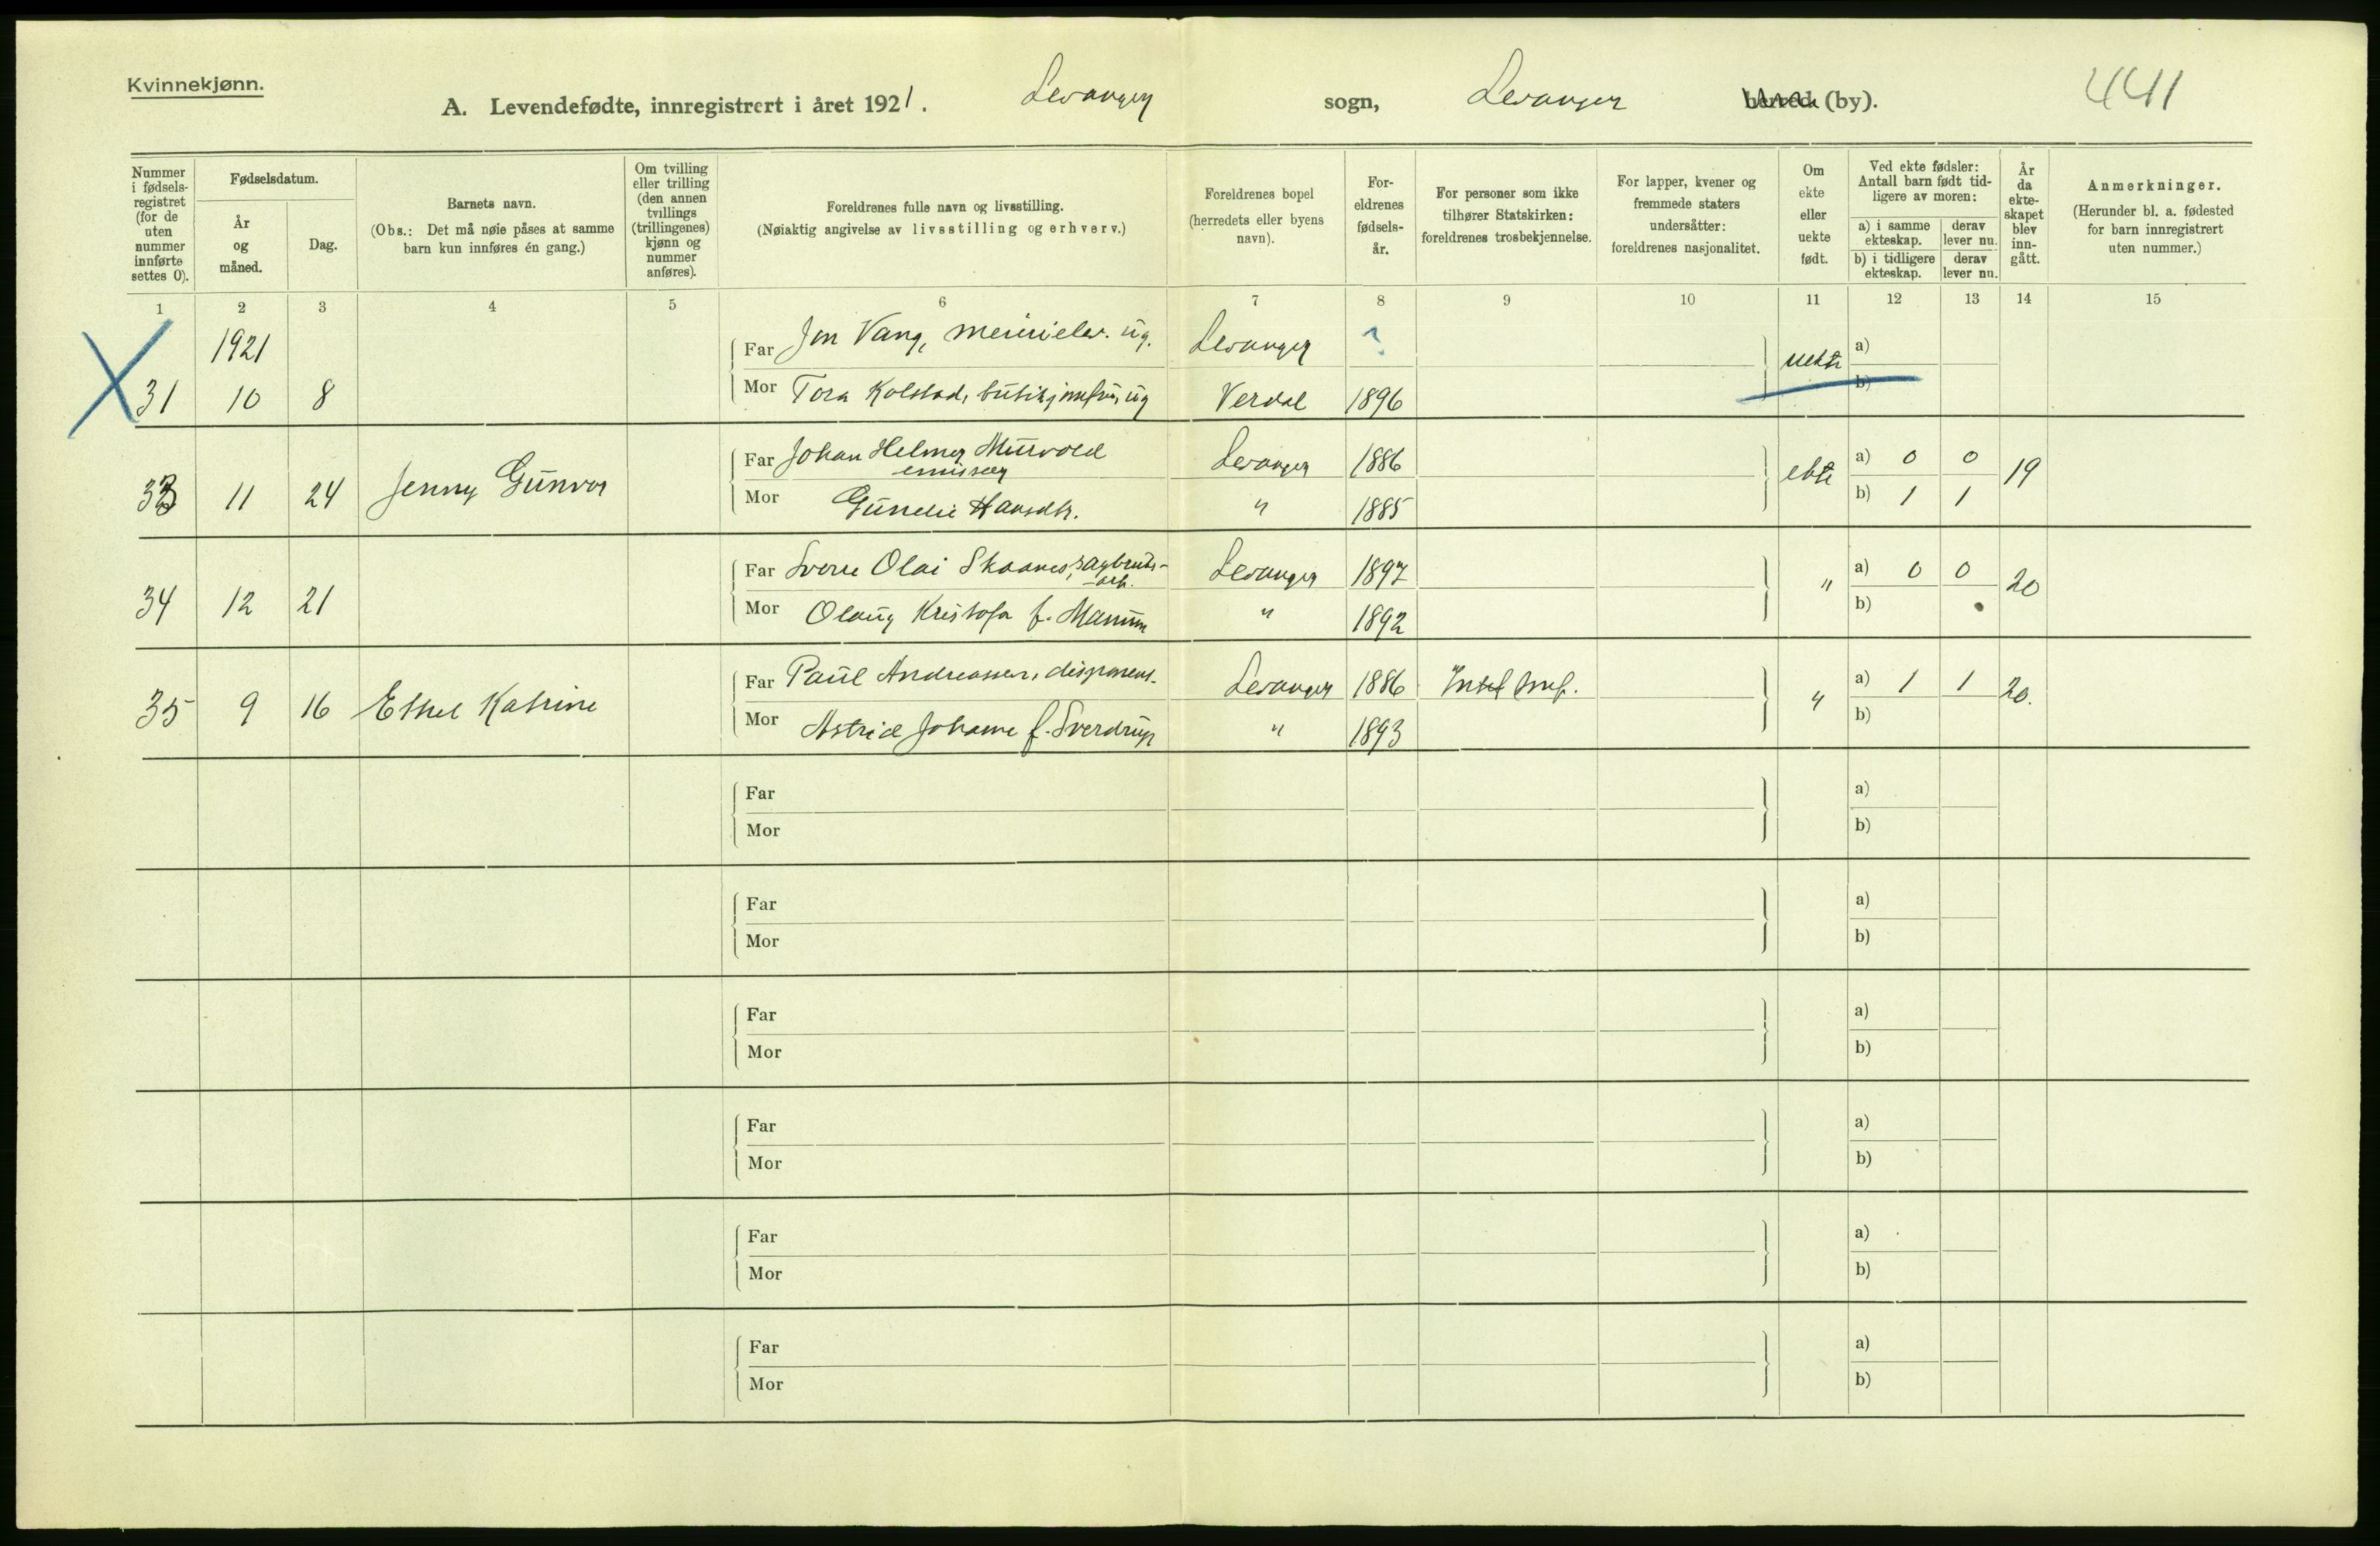 Kvinnekjønn.
A. Levendefødte, innregistrert i året 1921. Levanger sogn, Levanger herred (by). 441
Nummer i fødsels-registret (for de uten nummer innførte settes 0).
Fødselsdatum.
År og måned.
Dag.
Barnets navn.
(Obs.: Det må nøie påses at samme barn kun innføres én gang.)
Om tvilling eller trilling (den annen tvillings (trillingenes) kjønn og nummer anføres).
Foreldrenes fulle navn og livsstilling.
(Nøiaktig angivelse av livsstilling og erhverv.)
Foreldrenes bopel (herredets eller byens navn).
For-eldrenes fødsels-år.
For personer som ikke tilhører Statskirken: foreldrenes trosbekjennelse.
For lapper, kvener og fremmede staters undersåtter: foreldrenes nasjonalitet.
Om ekte eller uekte født.
Ved ekte fødsler: Antall barn født tid-ligere av moren:
a) i samme ekteskap.
derav lever nu.
b) i tidligere ekteskap.
derav lever nu.
År da ekte-skapet blev inn-gått.
Anmerkninger.
(Herunder bl. a. fødested for barn innregistrert uten nummer.)
1 2 3 4 5 6 7 8 9 10 11 12 13 14 15
1921
Far Jon Vang, meierielev. ug. Levanger ? uekte a)
31 10 8 Mor Tora Kolstad, butikjomfru, ug Verdal 1896 b)
Far Johan Helmer Murvold Levanger 1886 ekte a) 0 0 19
emissær
33 11 24 Jenny Gunvor Mor Gunelie Hansdtr. " 1885 b) 1 1
Far Sverre Olai Skaanes, sagbruks- Levanger 1897 " a) 0 0 20
arb.
34 12 21 Mor Olaug Kristofa f. " 1892 b)
Far Paul Andreassen, disponent. Levanger 1886 " a) 1 1 20.
35 9 16 Ethel Katrine Mor Astrid Johanne f. Sverdrup " 1893 b)
Far a)
Mor b)
Far a)
Mor b)
Far a)
Mor b)
Far a)
Mor b)
Far a)
Mor b)
Far a)
Mor b)